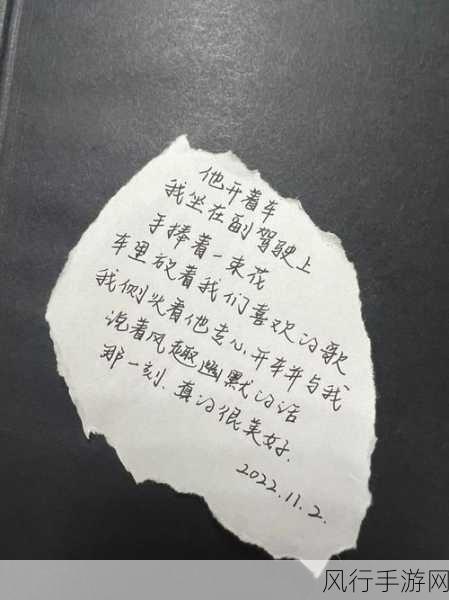 他开着车
我坐在副驾驶上
手捧着一束花
车里放着我们喜欢的歌
我侧头看他专心开车并与我
说着风趣幽默的话
那一刻.真的很美好.
2022.11.2.
风行手游网